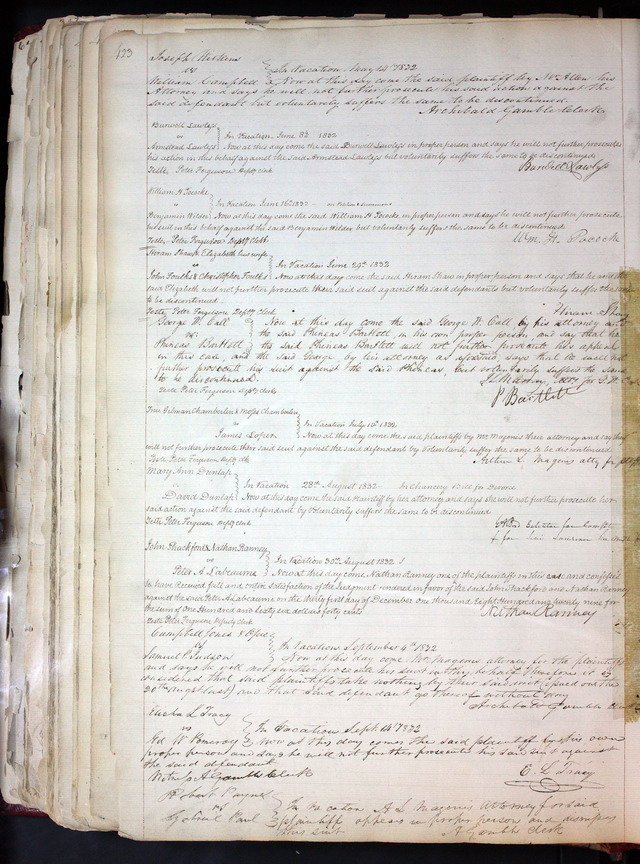 123
Joseph Wilkins
vs } In Vacation May 14th 1832
William Campbell } Now at this day come the said plaintiff by Mr Allen his
Attorney and says he will not further prosecute his said action against the
said defendant but voluntarily suffers the same to be discontinued.
Archibald Gamble Clerk
Burwell Lawless
vs } In Vacation, June 8th 1832
Armstead Lawless } Now at this day come the said Burwell Lawless in proper person and says he will not further prosecute
his action in this behalf against the said Armstead Lawless but voluntarily suffers the same to be discontinued
Teste, Peter Ferguson Depty Clerk
William H. Pococke
vs } In Vacation June 16th 1832
Benjamin Wilder } Now at this day come the said William H. Pococke, in proper person and says he will not further prosecute
his suit in this behalf against the said Benjamin Wilder but voluntarily suffers the same to be discontinued
Teste, Peter Ferguson Depty Clerk
Wm. H. Pococke
Hiram Shaw & Elizabeth his wife
vs } In Vacation June 29th 1832
John Foulks & Christopher Foulks } Now at this day come the said Hiram Shaw in proper person and says that he and the
said Elizabeth will not further prosecute their said suit against the said defendants but voluntarily suffers the same
to be discontinued
Teste, Peter Ferguson Depty Clerk
Hiram Shaw
George W. Call } Now at this day come the said George W. Call by his attorney and
vs } the said Phineas Bartlett, in his own proper person and say that he
Phineas Bartlett } the said Phineas Bartlett will not further prosecute his appeal
in this case, and the said George, by his attorney as aforesaid, says that he will not
further prosecute his suit against the said Phineas, but voluntarily suffers the same
to be discontinued.
Teste Peter Ferguson Depty Clerk
P. Bartlett
True Gilman Chamberlen & Moses Chamberlen
vs } In Vacation July 10th 1832
James Loper } Now at this day come the said plaintiffs by Mr Magenis their attorney and say they
will not further prosecute their said suit against the said defendant but Voluntarily suffer the same to be discontinued
Teste Peter Ferguson Depty Clk
Arthur L. Magenis atty for
Mary Ann Dunlap
vs } In Vacation 28th August 1832 - In Chancery Bill for Divorce
David Dunlap } Now at this day come the said Plaintiff by her attorney and says she will not further prosecute her
said action against the said defendant by Voluntarily suffers the same to be discontinued
Teste Peter Ferguson Depty Clerk
John Shackford & Nathan Ranney
vs } In Vacation 30th August 1832
Peter A Labeaume } Now at this day come Nathan Ranney one of the plaintiffs in this case and confesses
to have received full and entire satisfaction of the Judgment rendered in favor of the said John Shackford and Nathan Ranney
against the said Peter A Labeaume on the thirty first day of December one thousand Eight hundred and twenty nine for
the sum of One Hundred and sixty six dollars forty cents
Teste Peter Ferguson Deputy Clerk
Nathan Ranney
Campbell Jones &
vs } In Vacation September 4th 1832
Samuel Judson } Now at this day come Mr Magenis attorney for the plaintiffs
and says he will not further prosecute his suit in this behalf Therefore it is
considered that said plaintiffs take nothing by their said writ (issued out the
28th August last) and that said defendant go thereof without day
Archibald Gamble Clerk
Elisha L Tracy
vs } In Vacation Sept 14th 1832
Nd. W. Pomeroy } Now at this day comes the said plaintiff by his own
proper person and says he will not further prosecute his said suit against
the said defendant
Witness A Gamble Clerk
E. L Tracy
vs } In Vacation A L Magenis Attorney for said
Paul } plaintiff appears in proper person and dismisses
this suit
A Gamble Clerk